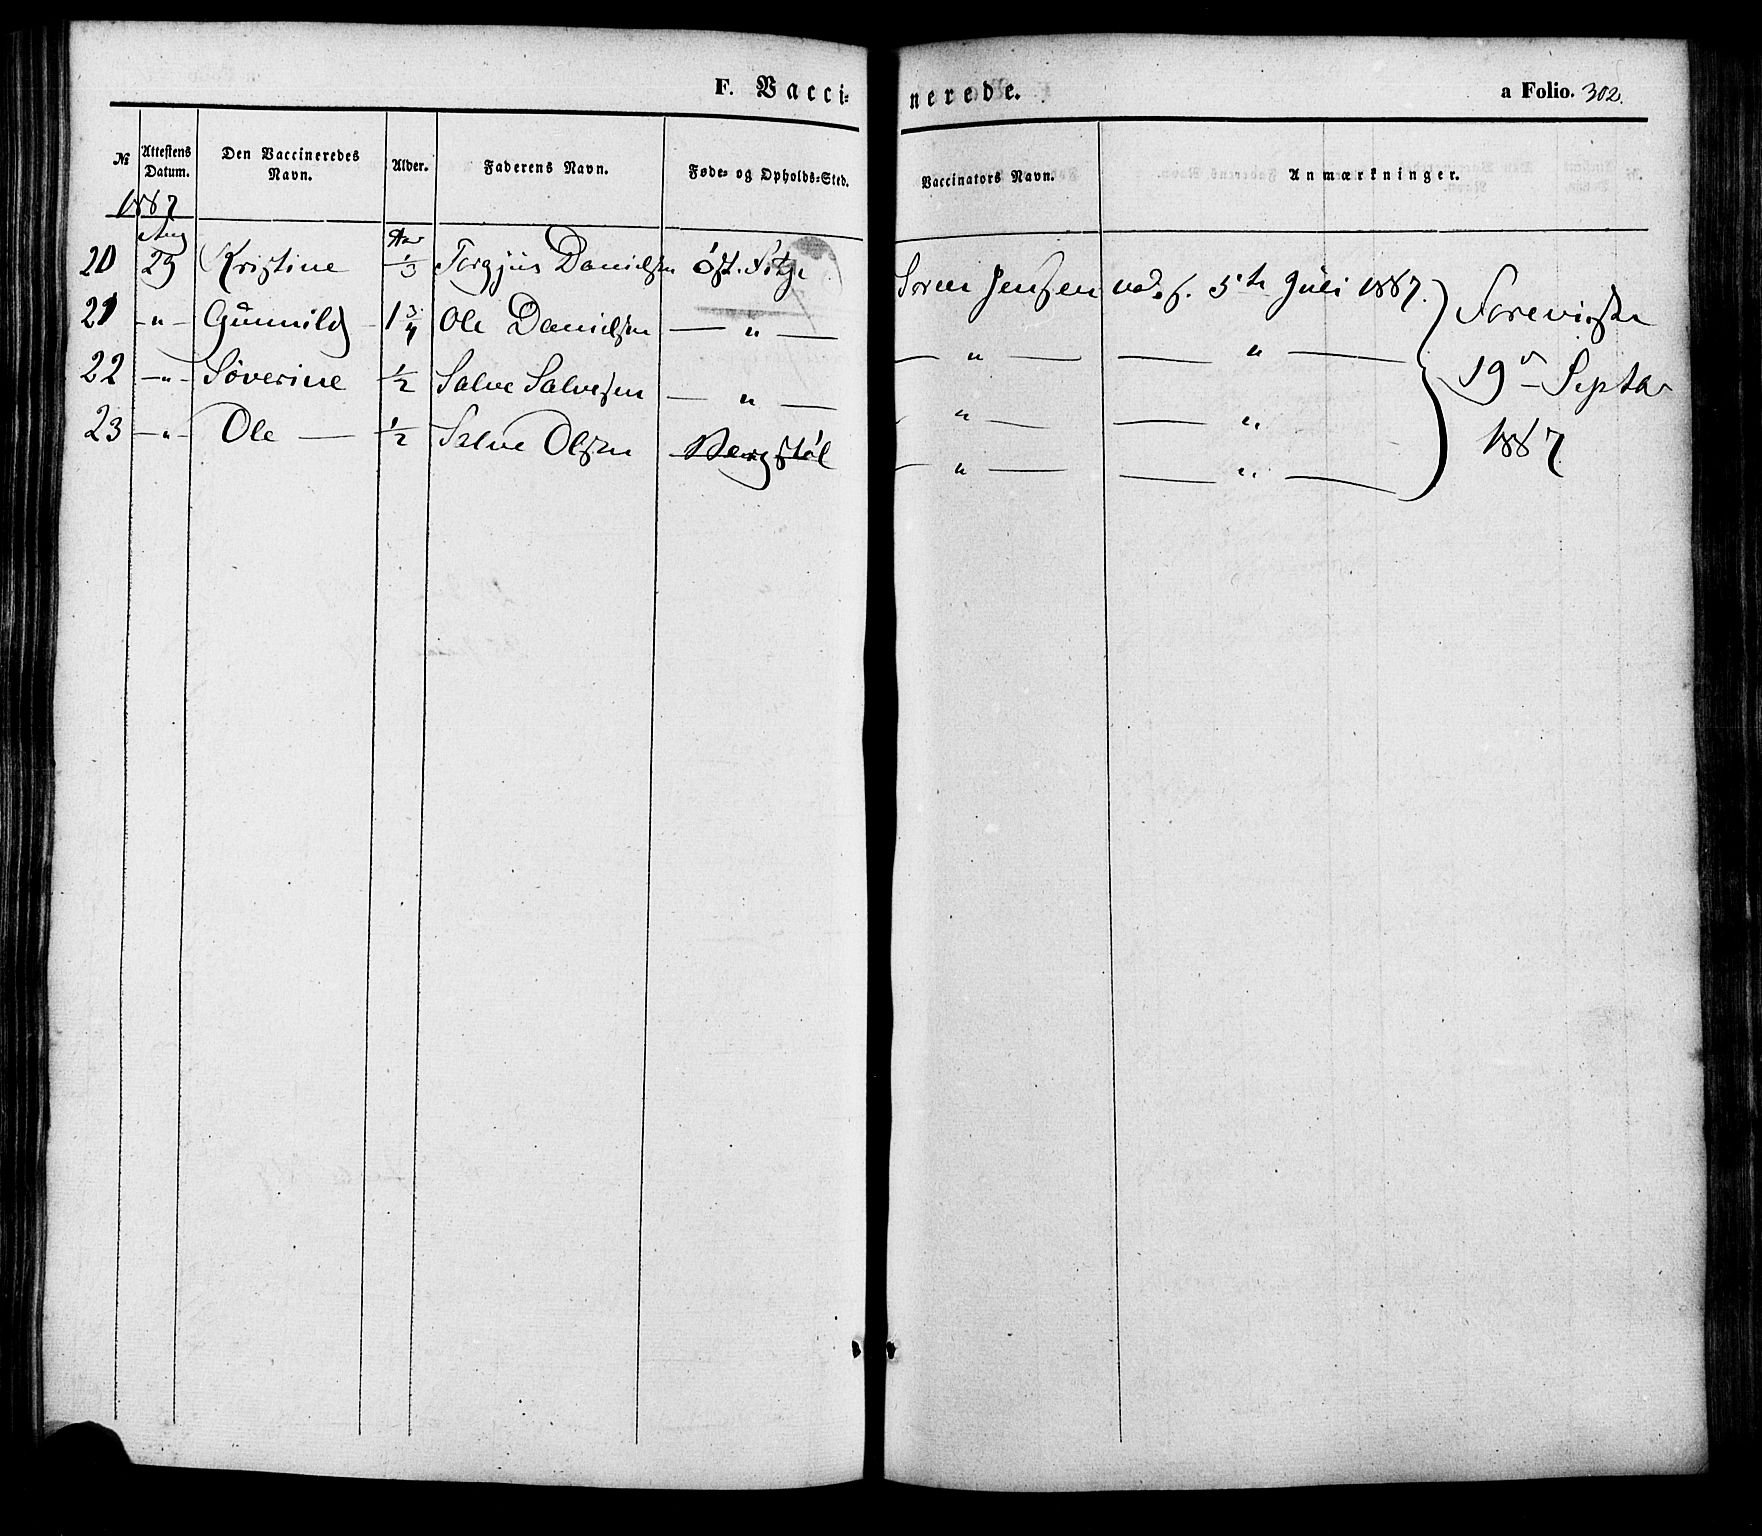 F. Vacci- nerede. a Folio. 302.
№ Attestens Datum. Den Vaccineredes Navn. Alder. Faderens Navn. Føde- og Opholds-Sted. Vaccinators Navn. Anmærkninger.
1887
Aug Aar
20 29 Kristine 1/3 Torgjus Danielsen Øst. Fidje Søren Jensen vac. f. 5te Juli 1887.
21 -"- Gunnild 1 3/4 Ole Danielsen — " — — " — — " —
22 -"- Søverine 1/2 Salve Salvesen — " — " — " —
23 -"- Ole — 1/2 Salve Olsen Bergstøl — " — — " —
Forevist
19de Septbr
1887